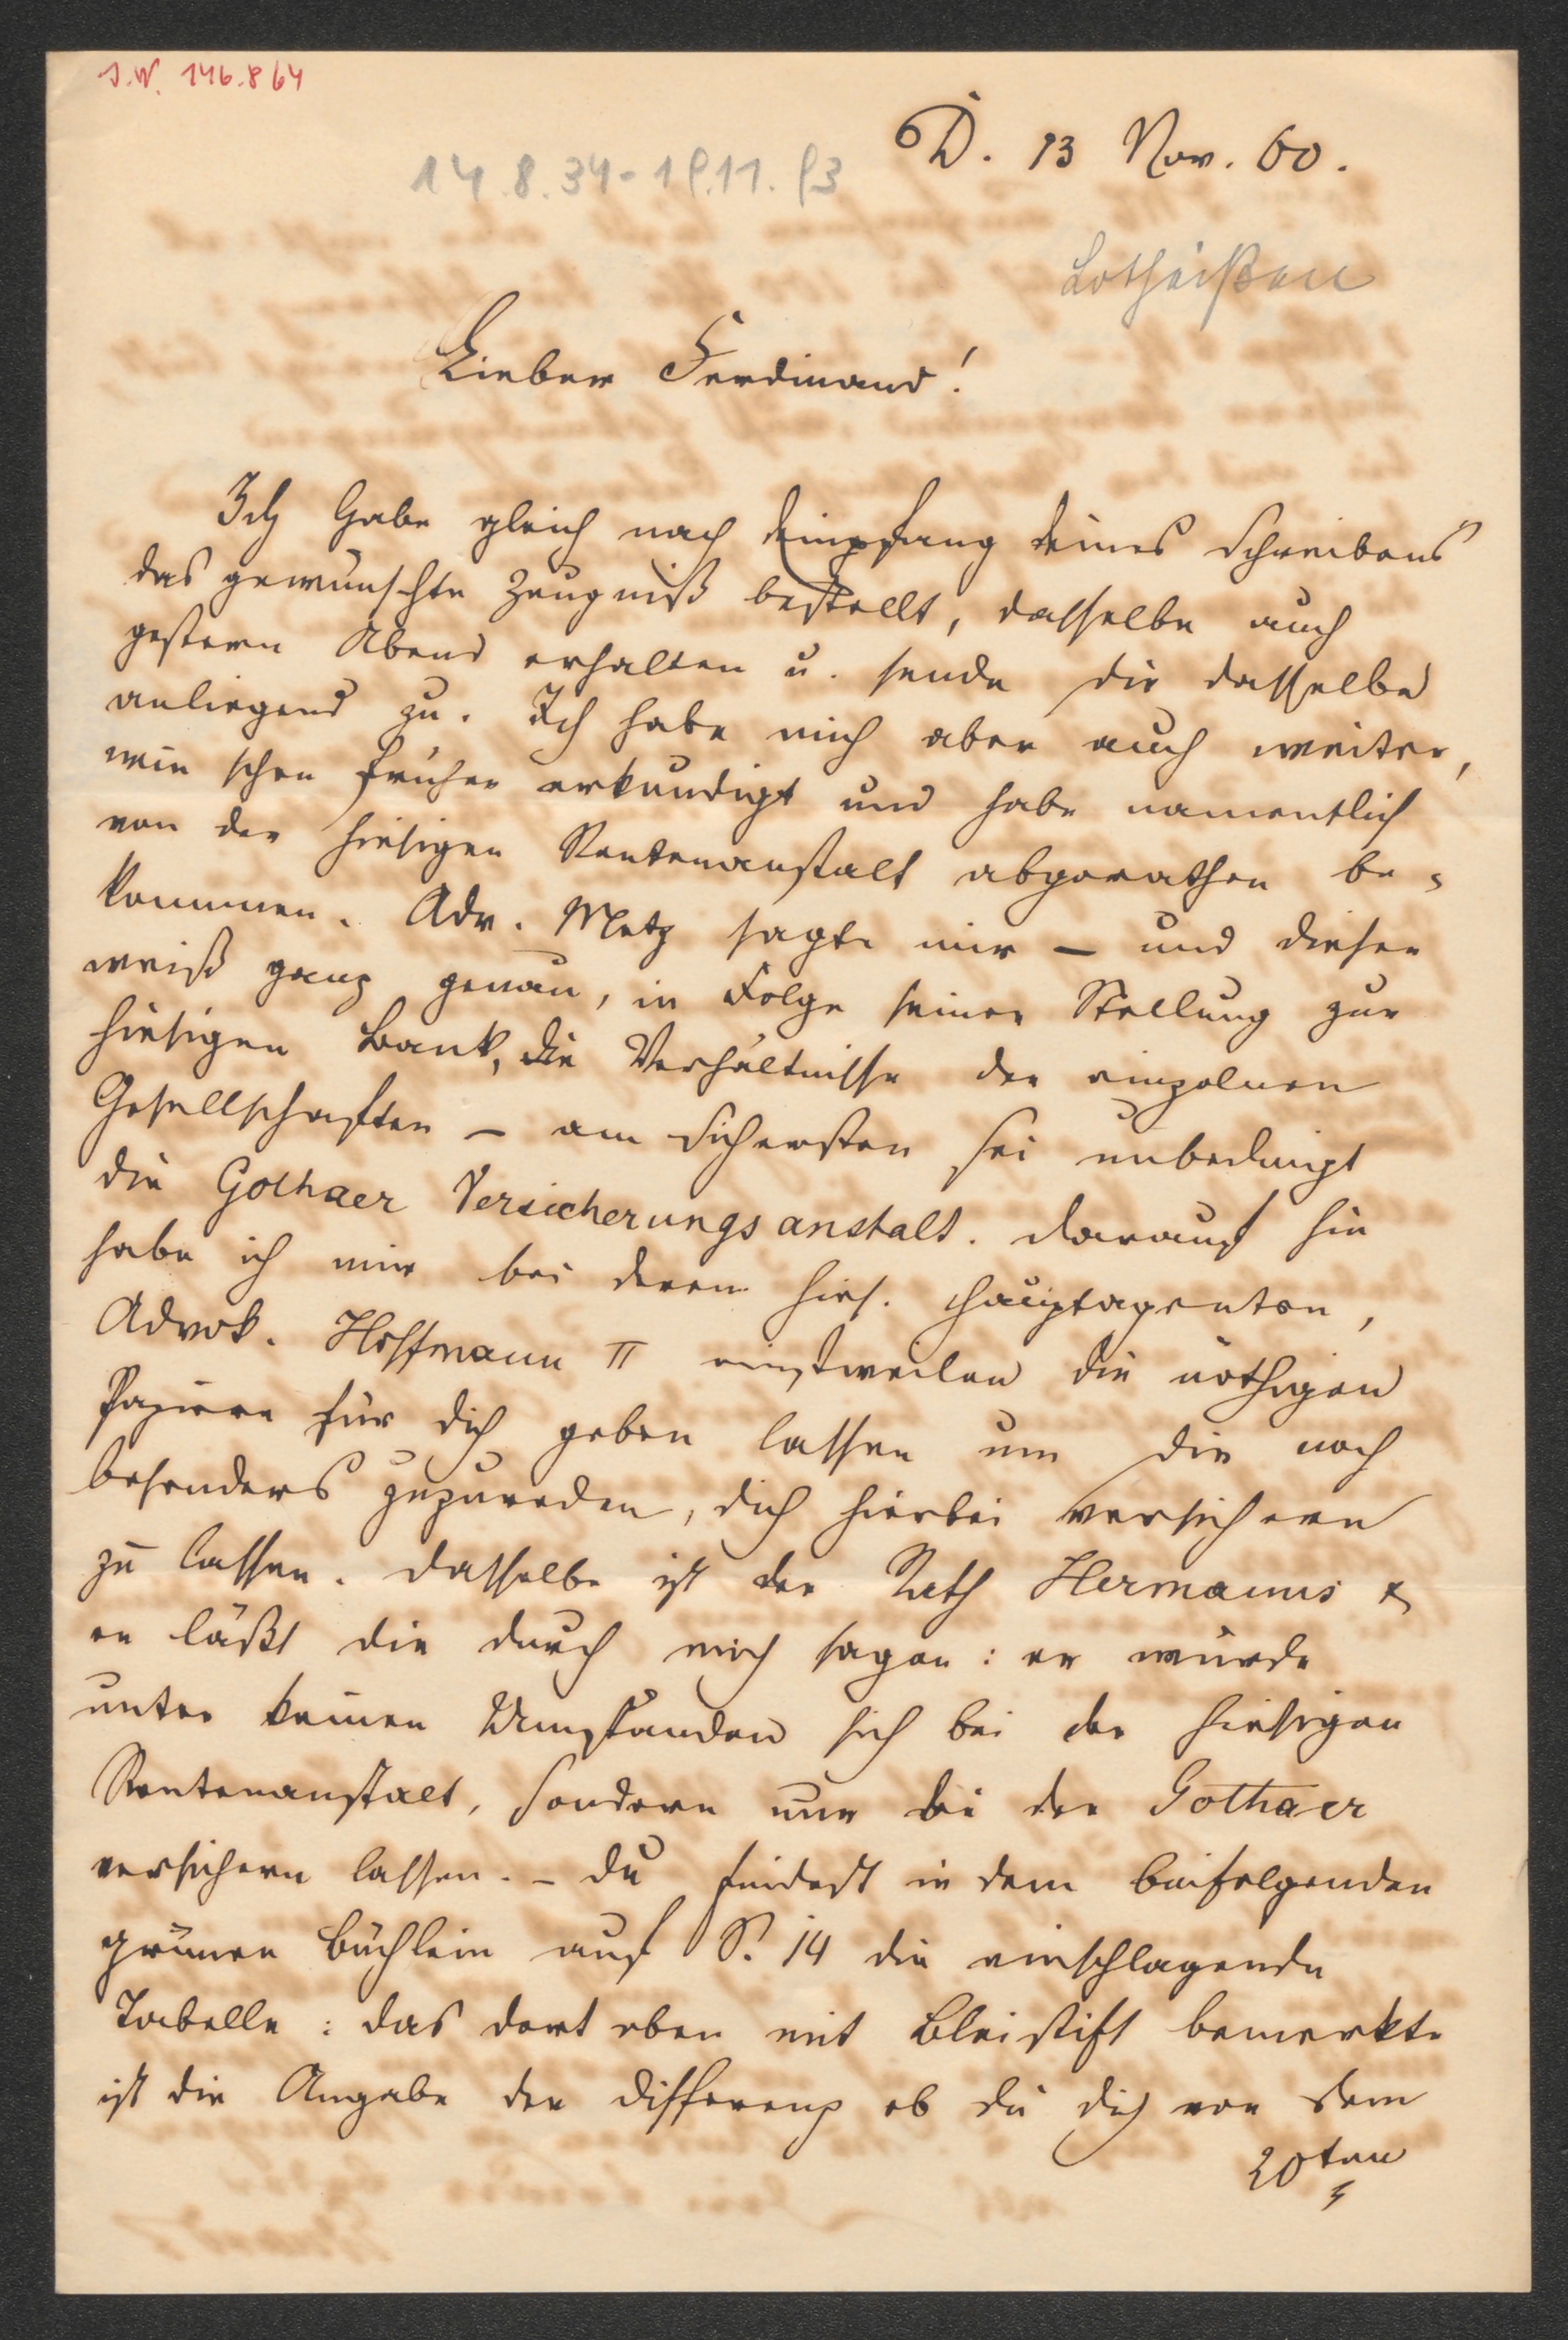 I.N. 146.864
D. 13 Nov. 60.
14.8.34-19.11.83
Lotheißen
Lieber Ferdinand!
Ich habe gleich nach Empfang deines Schreibens
das gewünschte Zeugniß bestellt, dasselbe auch
gestern Abend erhalten u. sende dir dasselbe
anliegend zu. Ich habe mich aber auch weiter,
wie schon früher erkundigt und habe namentlich
von der hiesigen Rentenanstalt abgerathen be-
kommen. Adv. Metz sagte mir – und dieser
weiß ganz genau, in Folge seiner Stellung zur
hiesigen Bank, die Verhältnisse der einzelnen
Gesellschaften – am sichersten sei unbedingt
die Gothaer Versicherungsanstalt. Darauf hin
habe ich mir bei deren hies. Hauptagenten,
Advok. Hoffmann II einstweilen die nöthigen
Papiere für dich geben lassen um dir noch
besonders zuzureden, dich hierbei versichern
zu lassen. Dasselbe ist der Rath Hermanns &
er läßt dir durch mich sagen: er würde
unter keinen Umständen sich bei der hiesigen
Rentenanstalt, sondern nur bei der Gothaer
versichern lassen. – Du findest in dem beifolgenden
grünen Büchlein auf S. 14 die einschlagende
Tabelle: das dort oben mit Bleistift bemerkte
ist die Angabe der Differenz ob du dich von dem
20ten